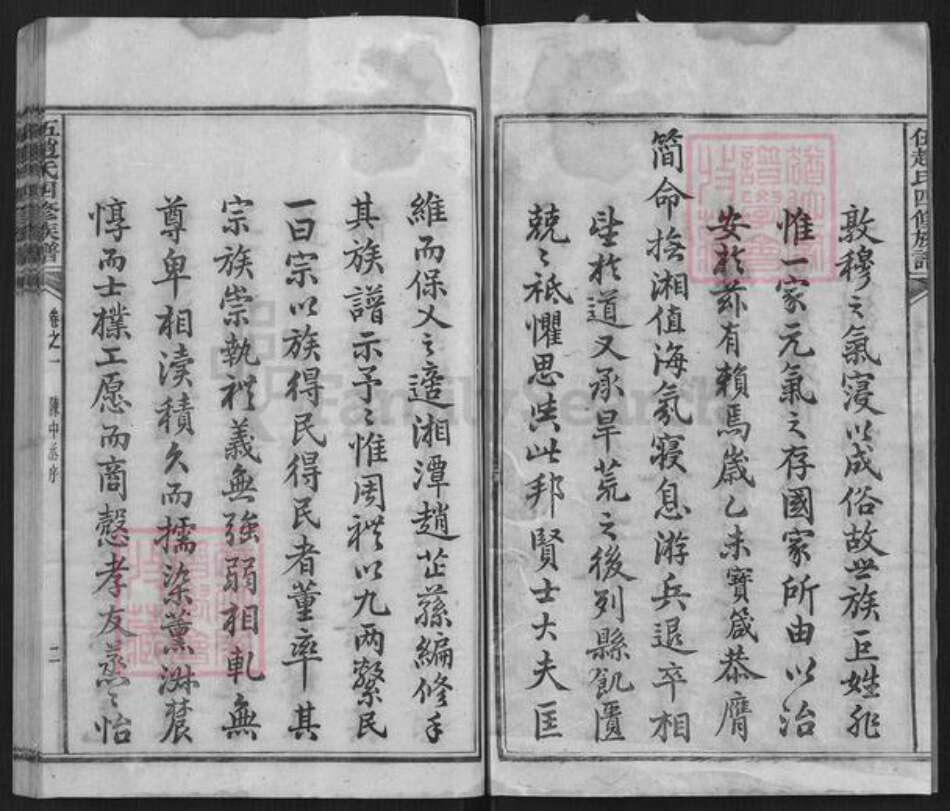 敦穆之氣寖以成俗故世族巨姓非
惟一家元氣之存國家所由以治
安於茲有賴焉歲乙未寶箴恭膺
簡命撫湘值海氛寢息游兵退卒相
望於道又承旱荒之後列縣飢匱
兢〻祇懼思共此邦賢士大夫匡
維而保乂之適湘潭趙芷蓀編修手
其族譜示予〻惟周禮以九兩繫民
一曰宗以族得民得民者董率其
宗族崇執禮義無強弱相軋無
尊卑相瀆積久而擩染薰淋農
惇而士樸工愿而商愨孝友烝〻怡
五趙氏四修族譜
卷之一
陳中丞序
二
FamilySearch